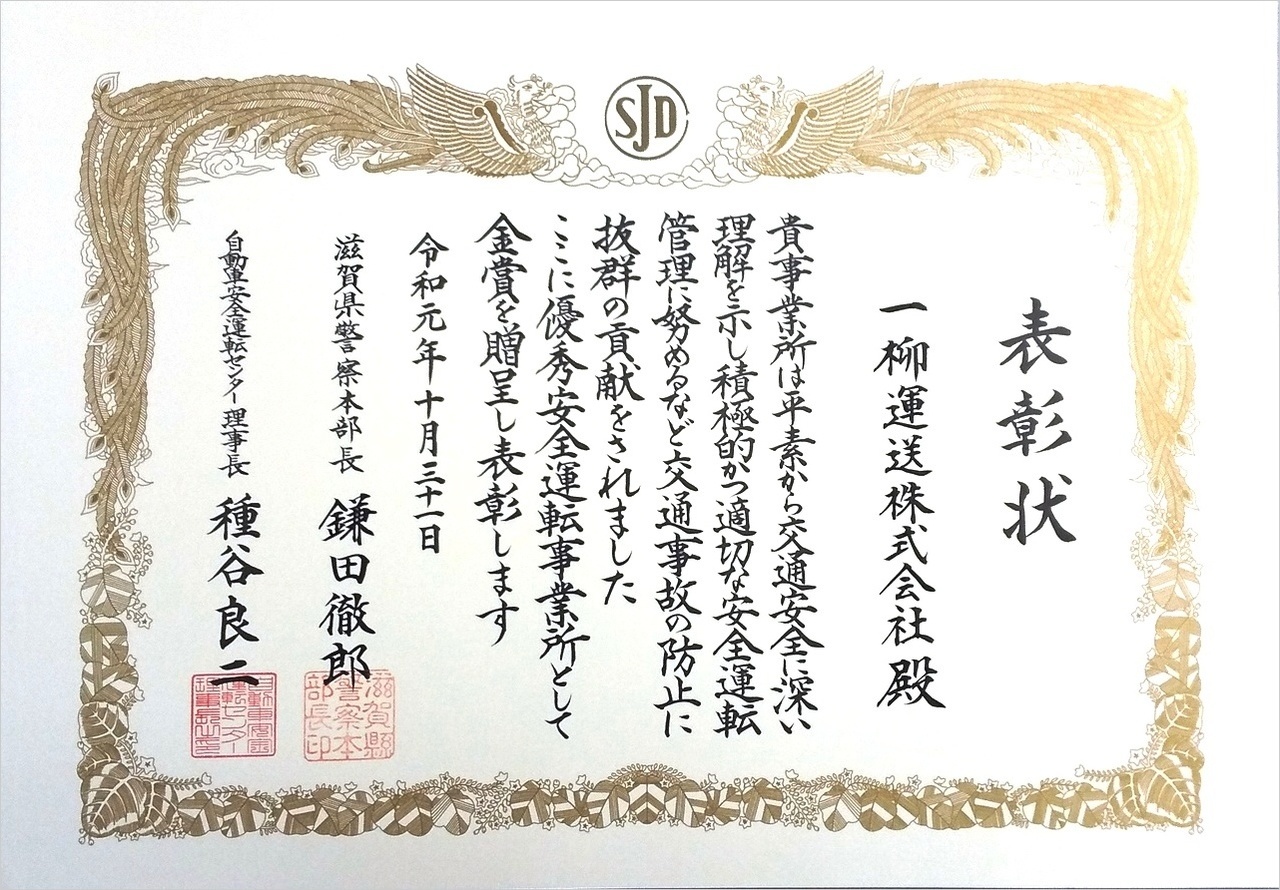 SJD
表彰状
一柳運送株式会社 殿
貴事業所は平素から交通安全に深い
理解を示し積極的かつ適切な安全運転
管理に努めるなど交通事故の防止に
抜群の貢献をされました
ここに優秀安全運転事業所として
金賞を贈呈し表彰します
令和元年十月三十一日
滋賀県警察本部長 鎌田徹郎
滋賀縣警察本部長印
自動車安全運転センター理事長 種谷良二
自動車安全運転センター理事長之印